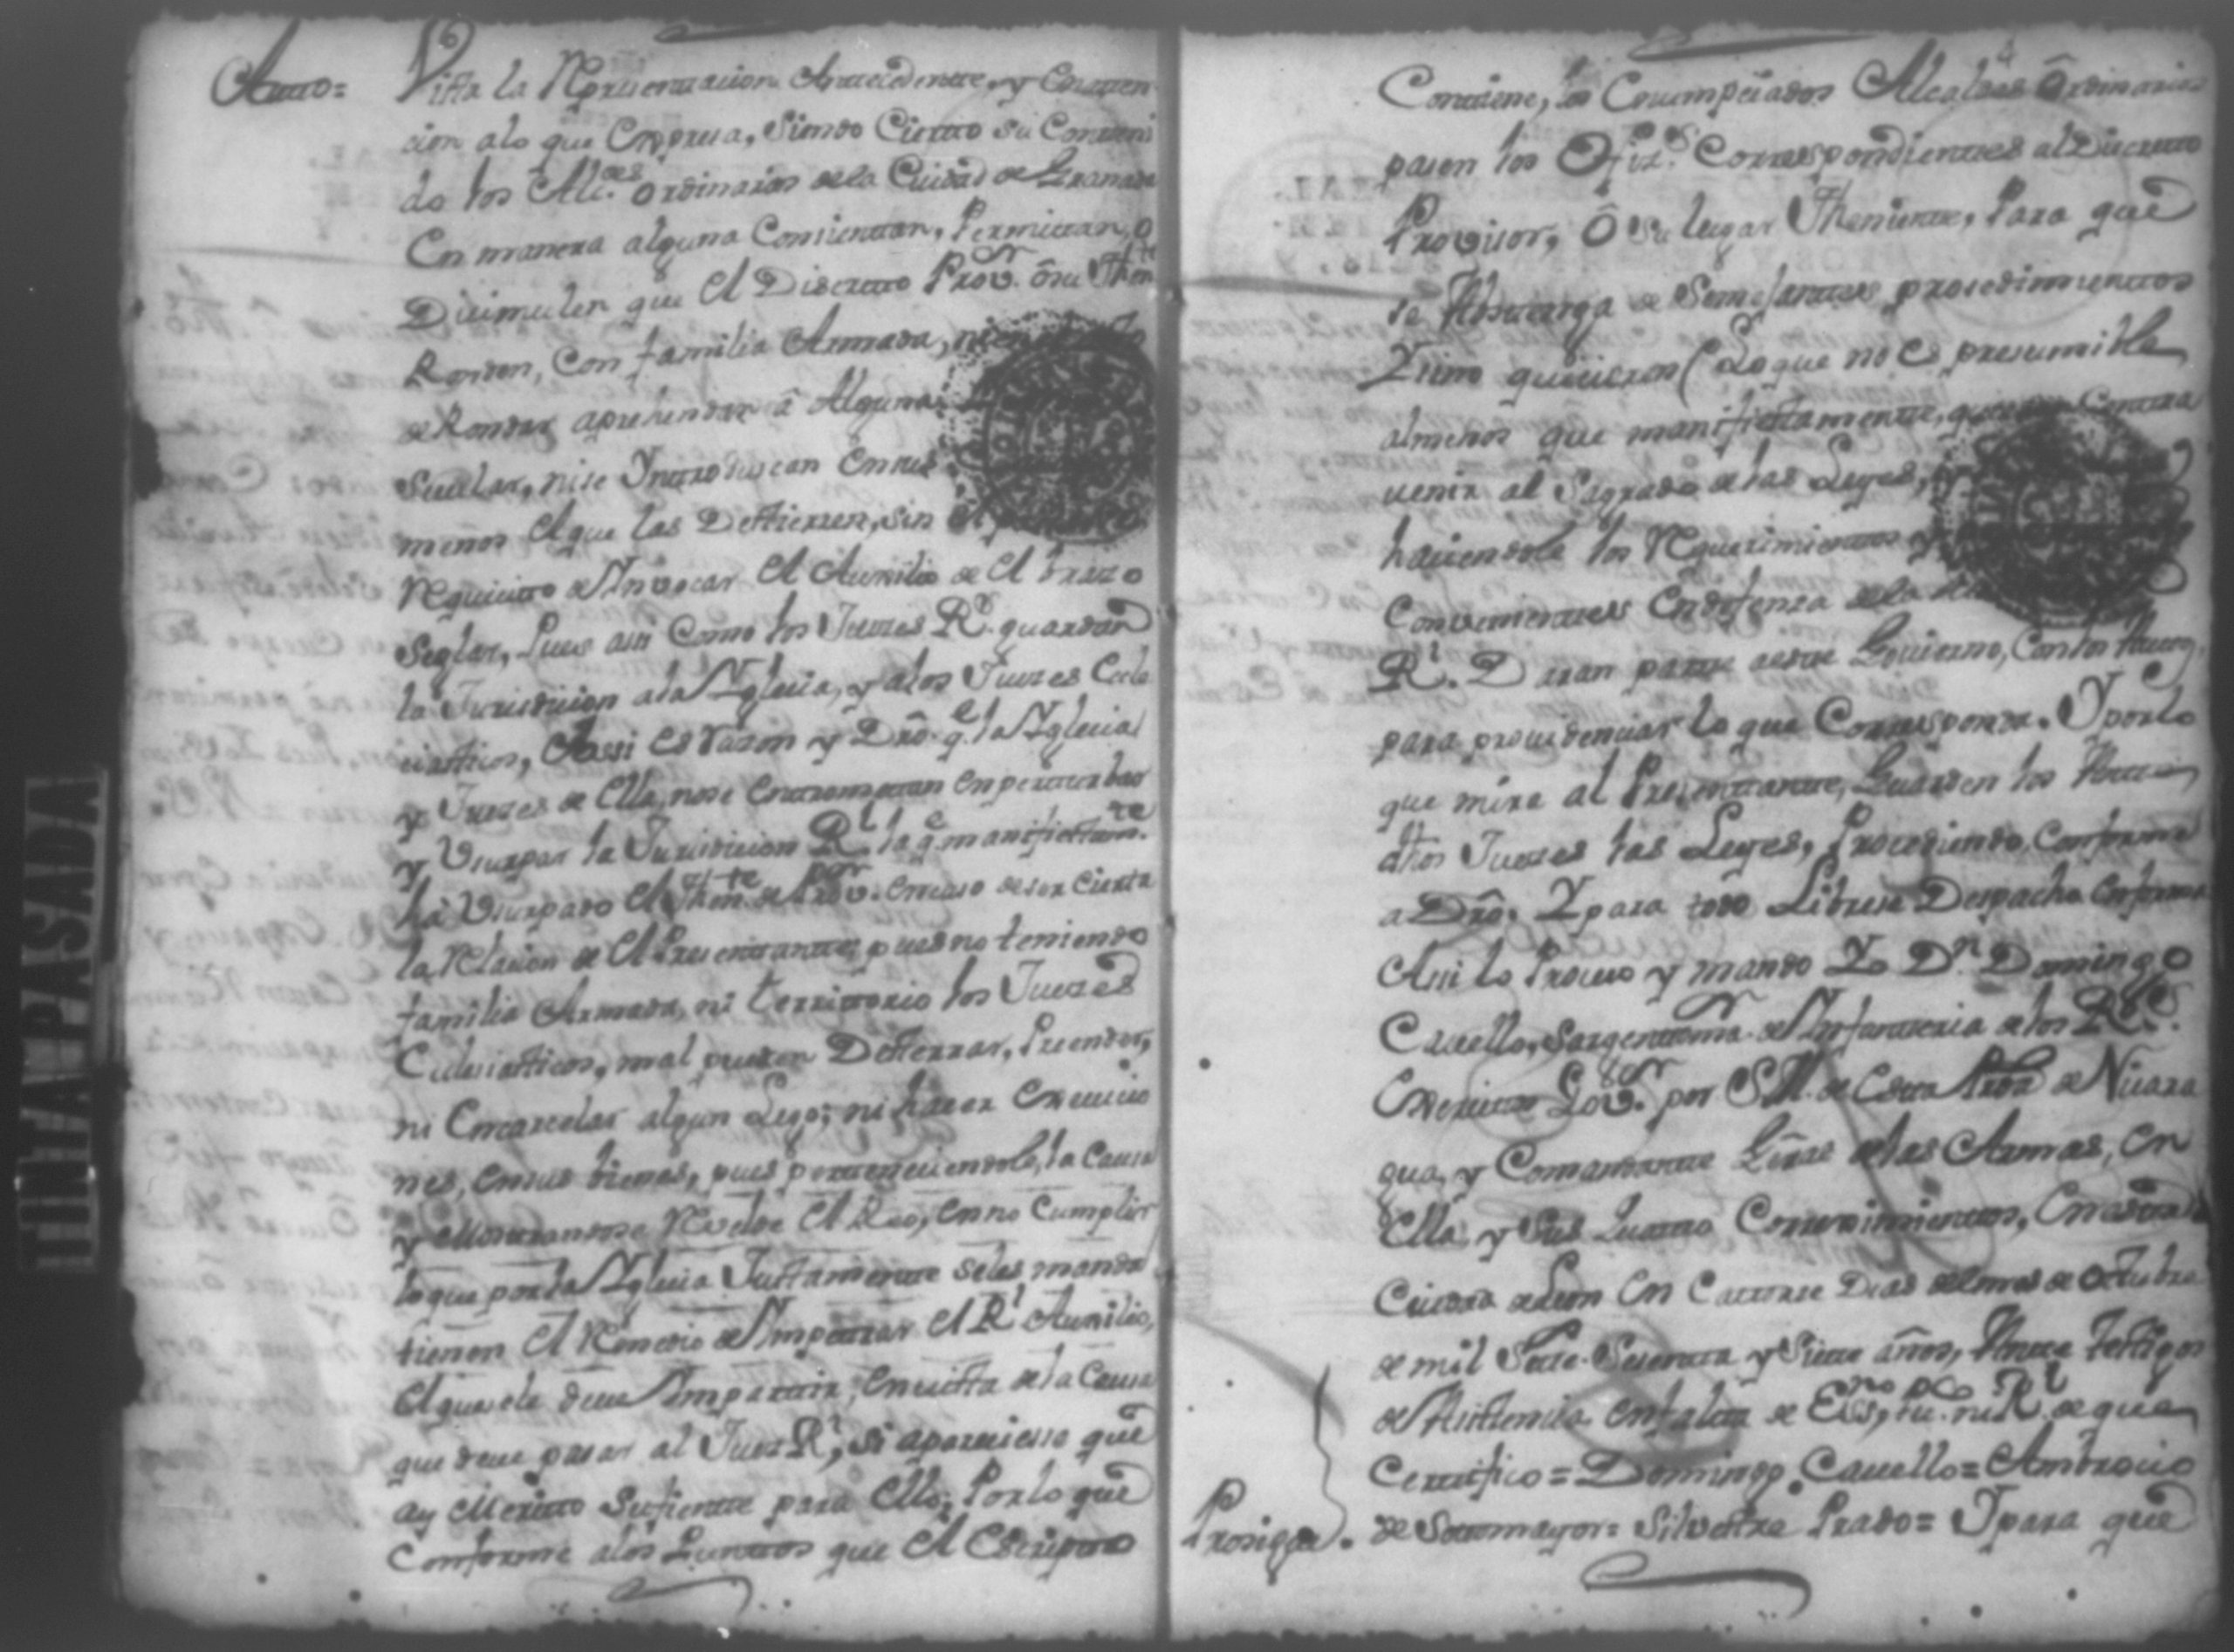 Autto=
Vista la Representacion Antecedente, y Enatten
cion alo que Expresa, siendo Ciertto su Conteni
do los Alc.des Ordinarios dela Ciudad de Granada
En manera alguna Consientan, Permittan, o
Disimulen que El Discretto Prov.or ô su Then.te
Ronden, Con familia Armada,
de Rondar aprehendan â Alguna
Secular, ni se Yntroduscan En sus
menos El que las Destierren, sin El
Requicitto de Ynvocar El Auxilio de El brazo
Seglar, Pues assi Como los Juezes R.s guardan
la Jurisdicion ala Yglecia, y alos Juezes Ecle
ciasticos, Assi es razon y Dro. q.e la Yglecia
y Juezes de Ella, no se Entromettan En perturbar
y Vsurpar la Jurisdicion R.l la q.e manifiestam.te
ha Vsurpado El Then.te de Prov.or En caso de ser Cierta
la relacion de El Presentante, pues no teniendo
familia Armada, ni territtorio los Juezes
Eclesiasticos, mal pueden Desterrar, Prender,
ni Encarcelar algun Lego; ni hacer Execucio
nes, En sus bienes, pues perteneciendole, la Causa
y Mostrandose Revelde El Reo, En no Cumplir
lo que por la Yglecia Justtamente se les manda
tienen El Remedio de Ympettrar El R.l Auxilio,
El que se le deve Ympartir, En vistta de la Causa
que deve pasar al Juez R.l, si apareciese que
ay Meritto Sufiente para Ello; Por lo que
Conforme alos Punttos que El Escriptto
Contiene, los Enumpciados Alcaldes Ôrdinarios
pasen los Ofiz.s Correspondientes al Discretto
Provisor, Ô Su lugar Theniente, Para que
se Abstenga de Semejantes procedimientos
Y si no quisieren (Lo que no Es presumible
al menos que manifiestamente, Contra
venir al Sagrado de las Leyes,
haciendole los Requerimientos
Convenientes En defenza de la
R.l Daran parte a este Govierno, Con los Autos,
para providenciar lo que Corresponda. Y por lo
que mira al Presentante, Guarden los
dhos Juezes las Leyes, Procediendo Conforme
a Dro. Y para todo Librese Despacho En forma
Assi lo Proveo y mando Yo D.n Domingo
Cavello, Sargentto m.or de Ynfanteria de los R.s
Exercittos Gov.or por S.M. de Esta Prov.a de Nicara
gua, y Comandante Gral de las Armas, En
Ella, y Sus Quatro Corregimientos, En
Ciudad de Leon En Cattorze Dias del mes de Octubre
de mil Sette. Sesentta y Siette años, Antte testigos
de Asistencia En falta de Ess.no pco. ni R.l de que
Certifico = Domingo Cavello = Ambrocio
Prosigue. de Sottomayor = Silvestre Prado = Y para que
TINTA PASADA